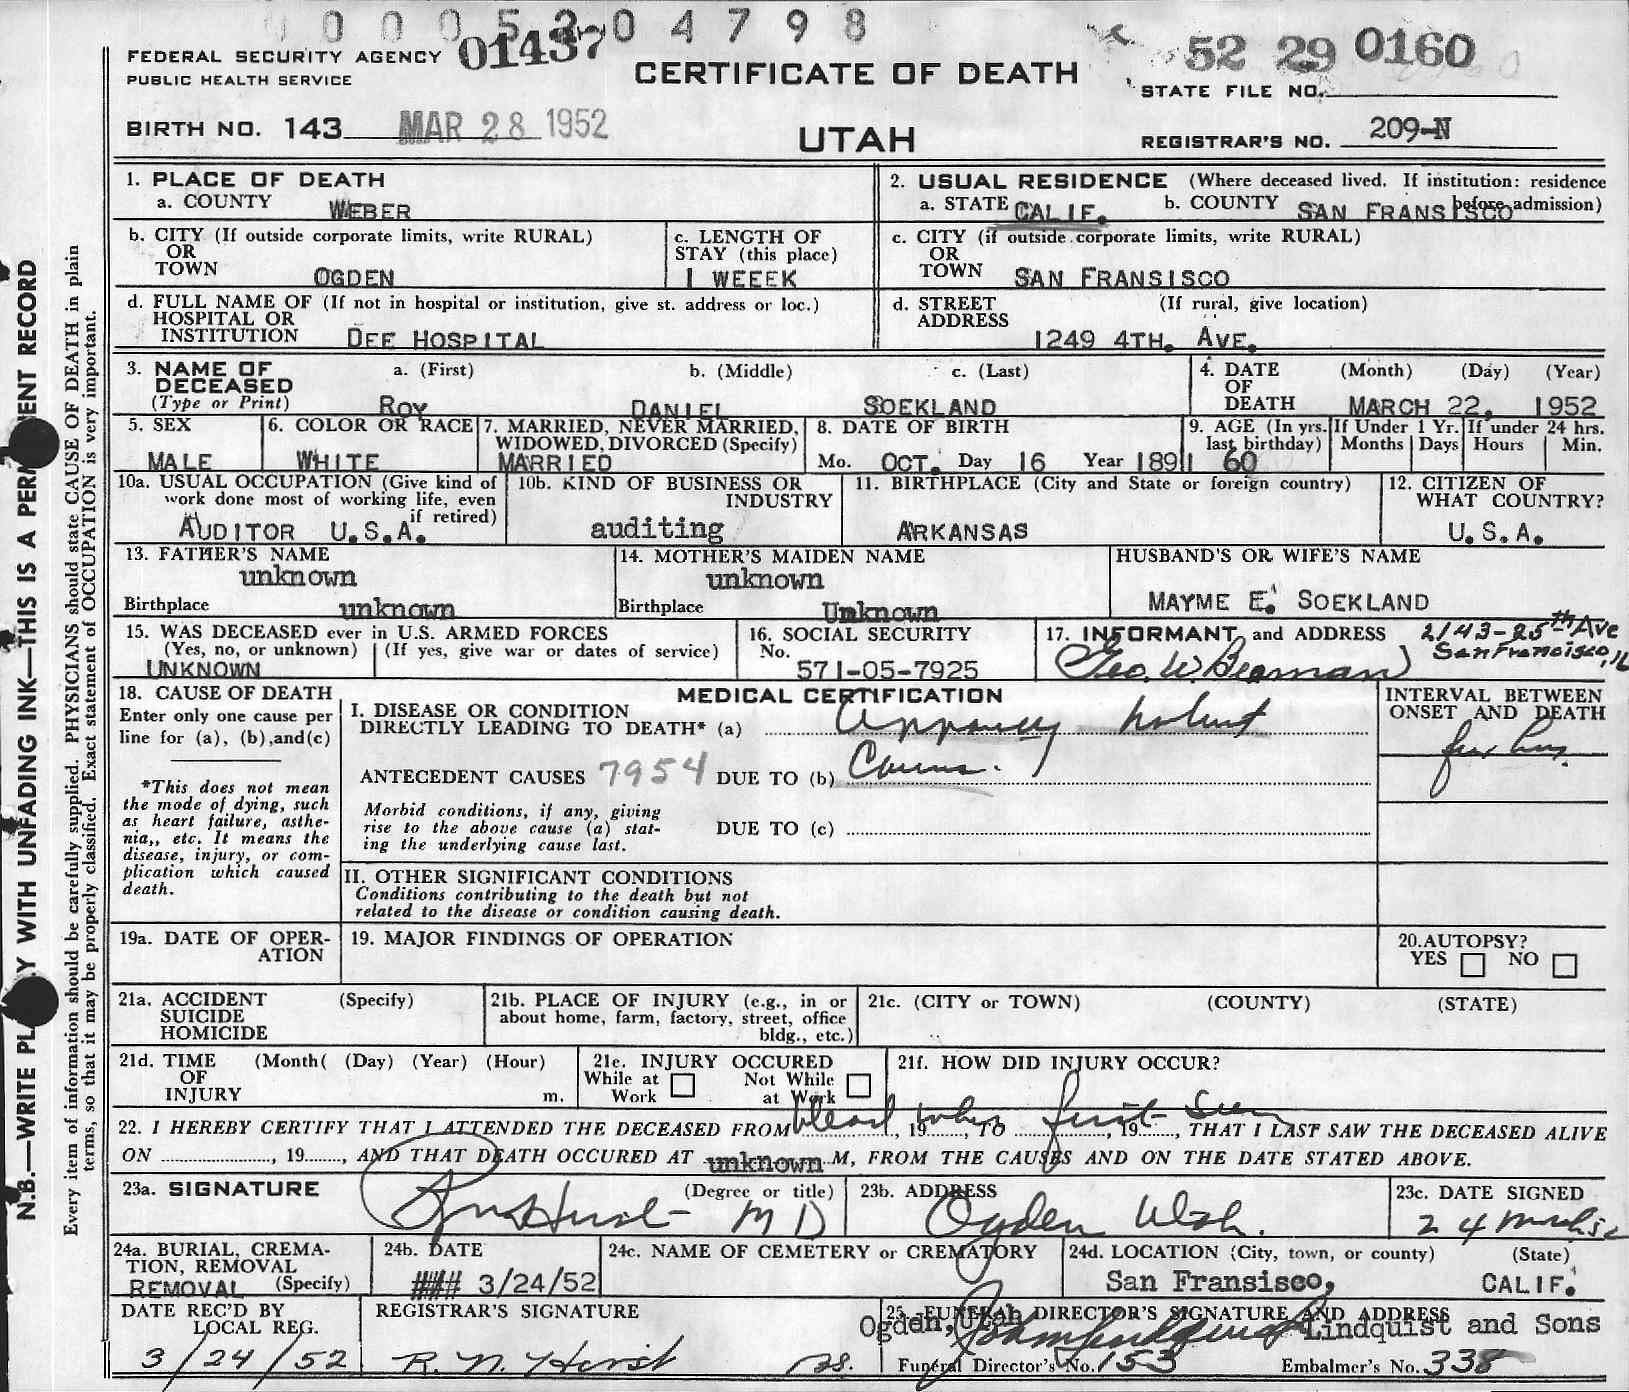 0 0 0 5 3 0 4 7 9 8
FEDERAL SECURITY AGENCY 01437
PUBLIC HEALTH SERVICE
CERTIFICATE OF DEATH
52 29 0160
STATE FILE NO.
BIRTH NO. 143 MAR 28 1952
UTAH
REGISTRAR'S NO. 209-N
1. PLACE OF DEATH
a. COUNTY WEBER
2. USUAL RESIDENCE (Where deceased lived. If institution: residence before admission)
a. STATE CALIF. b. COUNTY SAN FRANSISCO
b. CITY (If outside corporate limits, write RURAL)
OR
TOWN OGDEN
c. LENGTH OF
STAY (this place)
1 WEEEK
c. CITY (if outside corporate limits, write RURAL)
OR
TOWN SAN FRANSISCO
d. FULL NAME OF (If not in hospital or institution, give st. address or loc.)
HOSPITAL OR
INSTITUTION DEE HOSPITAL
d. STREET (If rural, give location)
ADDRESS
1249 4TH. AVE.
3. NAME OF
DECEASED
(Type or Print)
a. (First) b. (Middle) c. (Last)
ROY DANIEL SOEKLAND
4. DATE (Month) (Day) (Year)
OF
DEATH MARCH 22, 1952
5. SEX
MALE
6. COLOR OR RACE
WHITE
7. MARRIED, NEVER MARRIED,
WIDOWED, DIVORCED (Specify)
MARRIED
8. DATE OF BIRTH
Mo. OCT. Day 16 Year 1891
9. AGE (In yrs. last birthday)
60
If Under 1 Yr.
Months Days
If under 24 hrs.
Hours Min.
10a. USUAL OCCUPATION (Give kind of
work done most of working life, even
if retired)
AUDITOR U.S.A.
10b. KIND OF BUSINESS OR
INDUSTRY
auditing
11. BIRTHPLACE (City and State or foreign country)
ARKANSAS
12. CITIZEN OF
WHAT COUNTRY?
U.S.A.
13. FATHER'S NAME
unknown
Birthplace unknown
14. MOTHER'S MAIDEN NAME
unknown
Birthplace Unknown
HUSBAND'S OR WIFE'S NAME
MAYME E. SOEKLAND
15. WAS DECEASED ever in U.S. ARMED FORCES
(Yes, no, or unknown) (If yes, give war or dates of service)
UNKNOWN
16. SOCIAL SECURITY
No.
571-05-7925
17. INFORMANT and ADDRESS 2143-25th Ave
San Francisco, 16
Geo. W. Beaman
18. CAUSE OF DEATH
Enter only one cause per
line for (a), (b), and (c)
*This does not mean
the mode of dying, such
as heart failure, asthe-
nia,, etc. It means the
disease, injury, or com-
plication which caused
death.
MEDICAL CERTIFICATION
I. DISEASE OR CONDITION
DIRECTLY LEADING TO DEATH* (a)
ANTECEDENT CAUSES 7954 DUE TO (b) Causes.
Morbid conditions, if any, giving
rise to the above cause (a) stat-
ing the underlying cause last.
DUE TO (c)
II. OTHER SIGNIFICANT CONDITIONS
Conditions contributing to the death but not
related to the disease or condition causing death.
INTERVAL BETWEEN
ONSET AND DEATH
few hrs.
19a. DATE OF OPER-
ATION
19. MAJOR FINDINGS OF OPERATION
20. AUTOPSY?
YES NO
21a. ACCIDENT (Specify)
SUICIDE
HOMICIDE
21b. PLACE OF INJURY (e.g., in or
about home, farm, factory, street, office
bldg., etc.)
21c. (CITY or TOWN) (COUNTY) (STATE)
21d. TIME (Month( (Day) (Year) (Hour)
OF
INJURY m.
21e. INJURY OCCURED
While at Work
Not While at Work
21f. HOW DID INJURY OCCUR?
dead when first seen
22. I HEREBY CERTIFY THAT I ATTENDED THE DECEASED FROM , 19 , TO , 19 , THAT I LAST SAW THE DECEASED ALIVE
ON , 19 , AND THAT DEATH OCCURED AT unknown M, FROM THE CAUSES AND ON THE DATE STATED ABOVE.
23a. SIGNATURE (Degree or title)
M D
23b. ADDRESS
Ogden Utah.
23c. DATE SIGNED
24 March 52
24a. BURIAL, CREMA-
TION, REMOVAL
(Specify)
REMOVAL
24b. DATE
3/24/52
24c. NAME OF CEMETERY or CREMATORY
24d. LOCATION (City, town, or county) (State)
San Fransisco, CALIF.
DATE REC'D BY
LOCAL REG.
3/24/52
REGISTRAR'S SIGNATURE
R. N. Hirst
25. FUNERAL DIRECTOR'S SIGNATURE AND ADDRESS
Ogden, Utah Lindquist and Sons
Funeral Director's No. 153 Embalmer's No. 338
N.B.—WRITE PLAINLY WITH UNFADING INK—THIS IS A PERMANENT RECORD
Every item of information should be carefully supplied. PHYSICIANS should state CAUSE OF DEATH in plain
terms, so that it may be properly classified. Exact statement of OCCUPATION is very important.